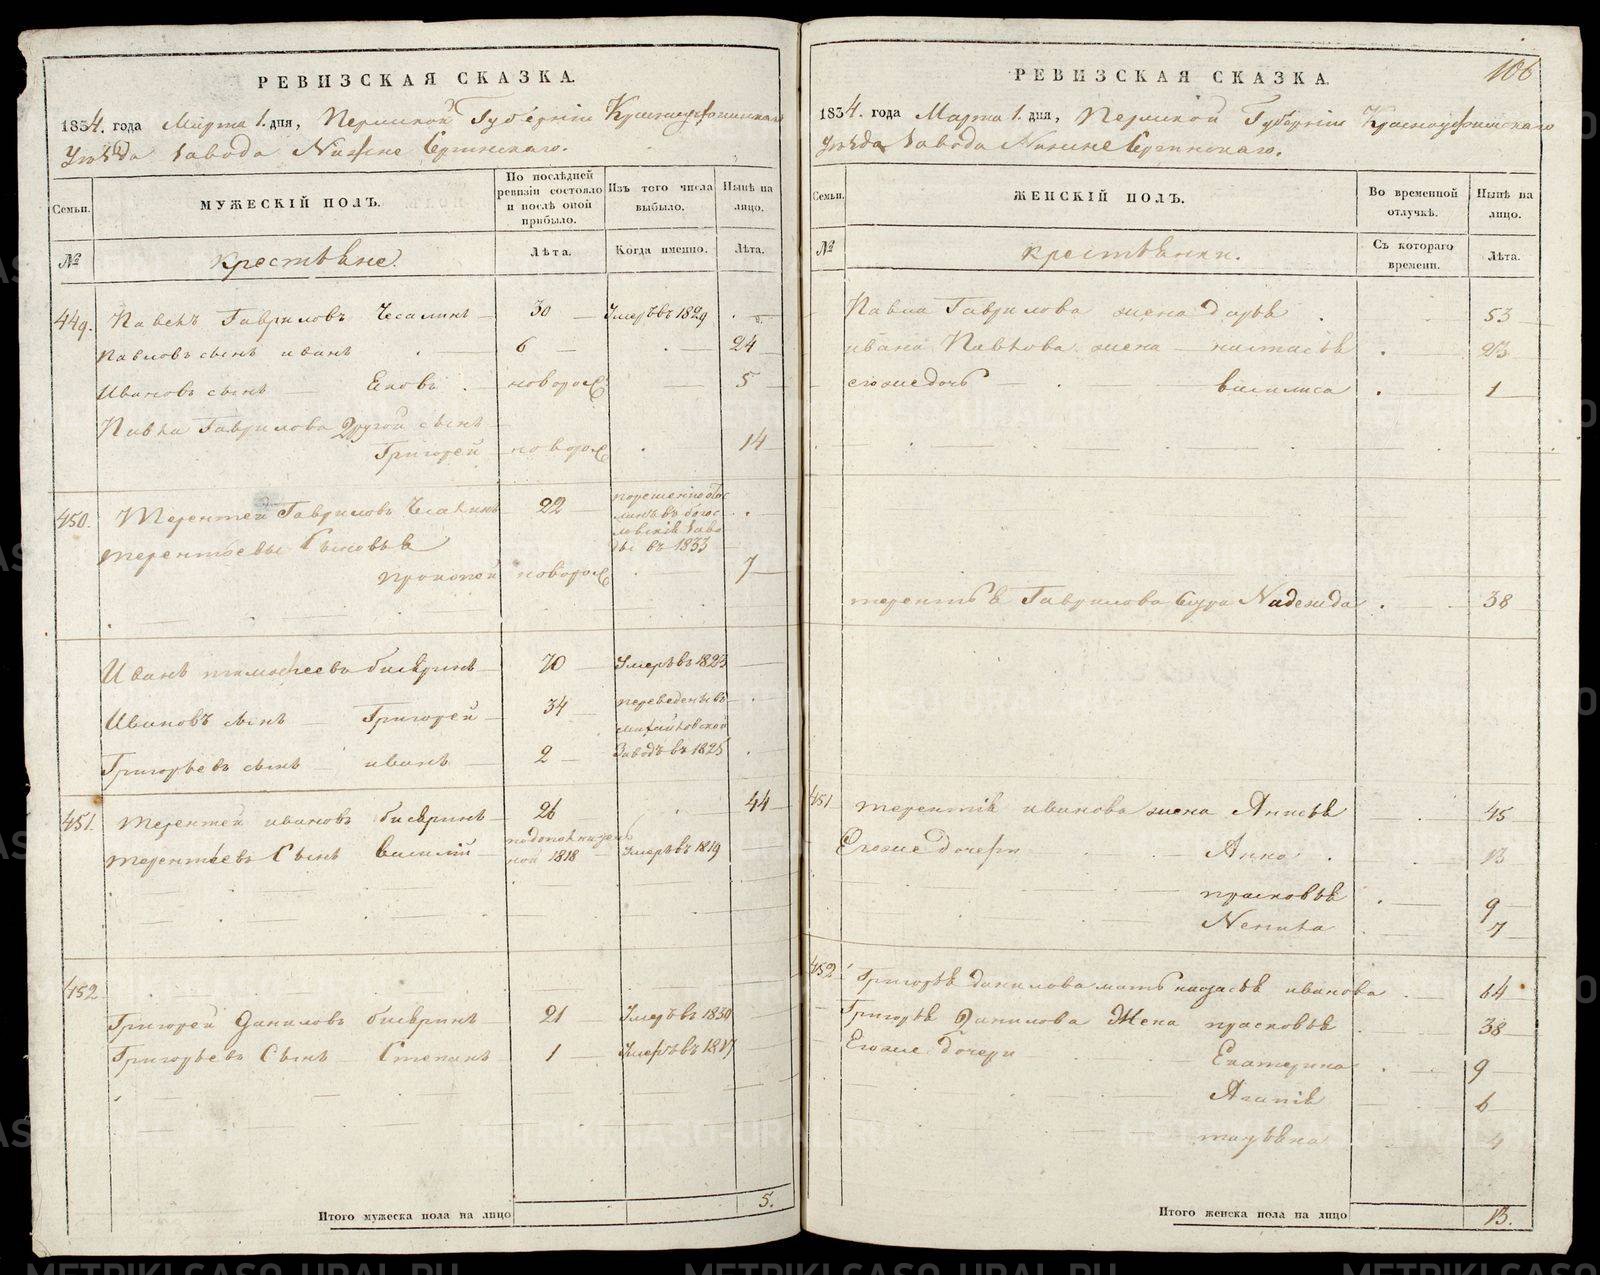 РЕВИЗСКАЯ СКАЗКА.
1834. года Марта 1. дня, Пермской Губерніи Красноуфимскаго
Уѣзда Завода Нижне Сергинскаго.
Семьи.
МУЖЕСКІЙ ПОЛЪ.
По послѣдней ревизіи состояло и послѣ оной прибыло.
Изъ того числа выбыло.
Нынѣ на лицо.
№
Крестьяне.
Лѣта.
Когда именно.
Лѣта.
449. Павелъ Гавриловъ 30 Умеръ въ 1829
Павловъ сынъ иванъ 6 24
Ивановъ сынъ новорож 5
Павла Гаврилова Другой сынъ
Григорей новорож 14
450. Терентей Гавриловъ 22
въ 1833
Терентьевы Сыновья
прокопей новорож 7
Иванъ тимофеевъ 70 Умеръ въ 1823
Ивановъ сынъ Григорей 34 переведены въ
михайловской
Григорьевъ сынъ иванъ 2 Заводъ въ 1825
451. терентей ивановъ 26 44
терентьевъ Сынъ василій 1818 Умеръ въ 1819
452
Григорей Даниловъ 21 Умеръ въ 1830
Григорьевъ Сынъ Степанъ 1 Умеръ въ 1817
Итого мужеска пола на лицо 5.
106
РЕВИЗСКАЯ СКАЗКА.
1834. года Марта 1. дня, Пермской Губерніи Красноуфимскаго
Уѣзда Завода Нижне Сергинскаго.
Семьи.
ЖЕНСКІЙ ПОЛЪ.
Во временной отлучкѣ.
Нынѣ на лицо.
№
крестьянки.
Съ котораго времени.
Лѣта.
Павла Гаврилова жена дарья 53
ивана Павлова жена настасья 23
егоже дочь василиса 1
терентья Гаврилова Надежда 38
451 терентія иванова жена Анисья 45
Егоже дочери Анна 13
прасковья 9
7
452 Григорья данилова мать настасья иванова 64
Григорья Данилова Жена прасковья 38
Егоже дочери Екатерина 9
Агапія 6
татьяна 4
Итого женска пола на лицо 13.
METRIKI.GASO-URAL.RU